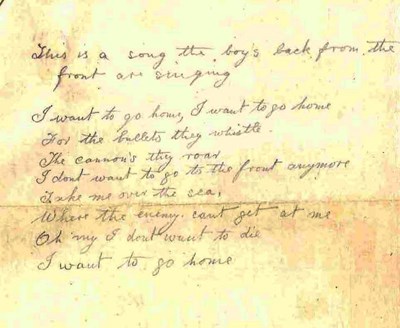 This is a song the boy's back from the
front are singing
I want to go home, I want to go home
For the bullets they whistle
The cannon's they roar
I dont want to go to the front anymore
Take me over the sea,
Where the enemy cant get at me
Oh my I dont want to die
I want to go home